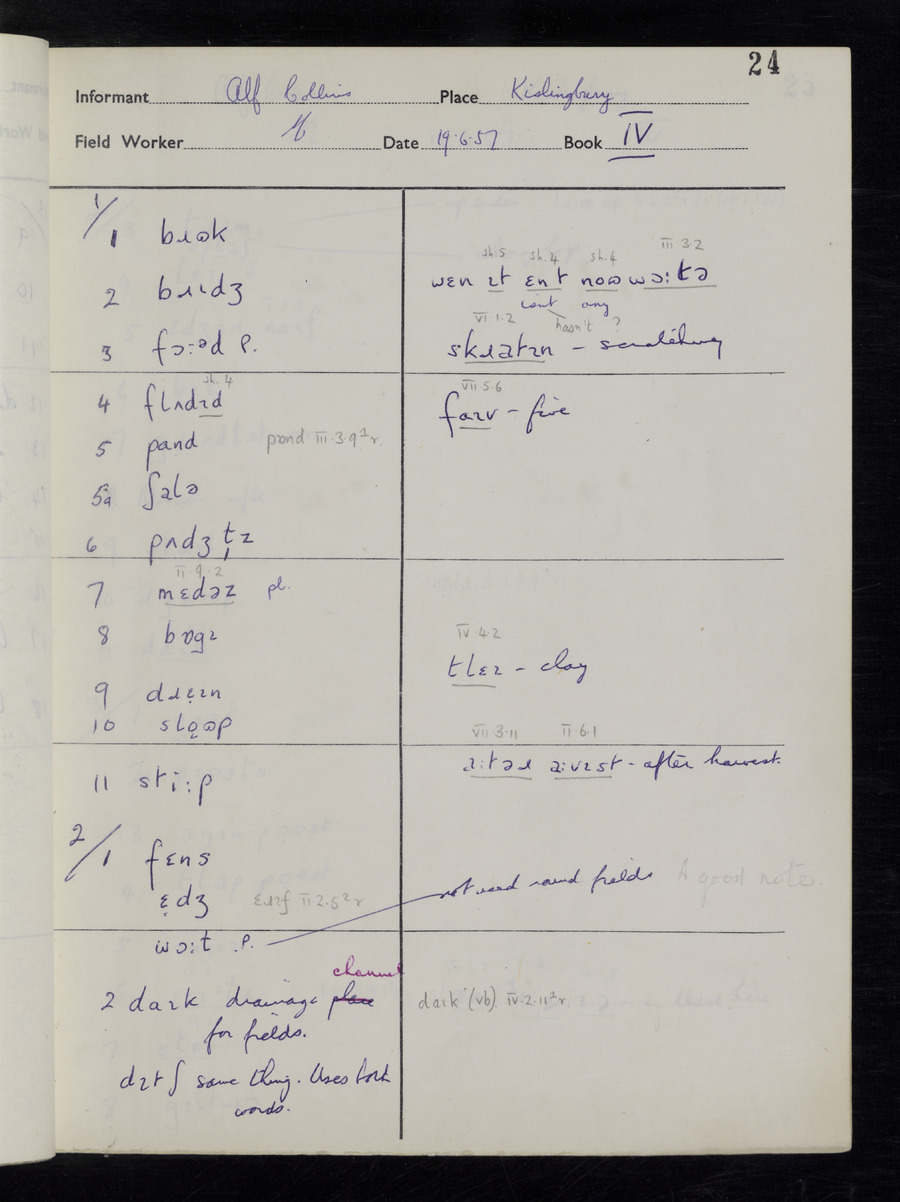 24
Informant Alf Collins Place Kislingbury
Field Worker Date 19.6.57 Book IV
1/
1 bɹʊk
sh.5 sh.4 sh.4 III.3.2
wɛn ɪt ɛnt noʊ wɔːtə
isn't any
hasn't ?
2 bɹɪdʒ
VI 1.2
3 fɔːəd P. skɹatɪn – scratching
sh.4 VII.5.6
4 flʌdɪd faɪv – five
5 pand pɒnd III.3.9¹r.
5a ʃalə
6 pʌdʒ ɫz
II.9.2
7 mɛdəz pl.
8 bɒgɪ IV.4.2
tlɛɪ – clay
9 dɹɛɪn
10 sloʊp VII.3.11 II.6.1
aːtəɹ aːvɪst – after harvest.
11 stiːp
2/
1 fɛns
ɛdʒ ɛɹɪf II 2.5²r not used round fields A good note.
wɔːt P.
channel
2 daɪk drainage place daɪk (vb) IV.2.11²r.
for fields.
dɪtʃ same thing. Uses both
words.